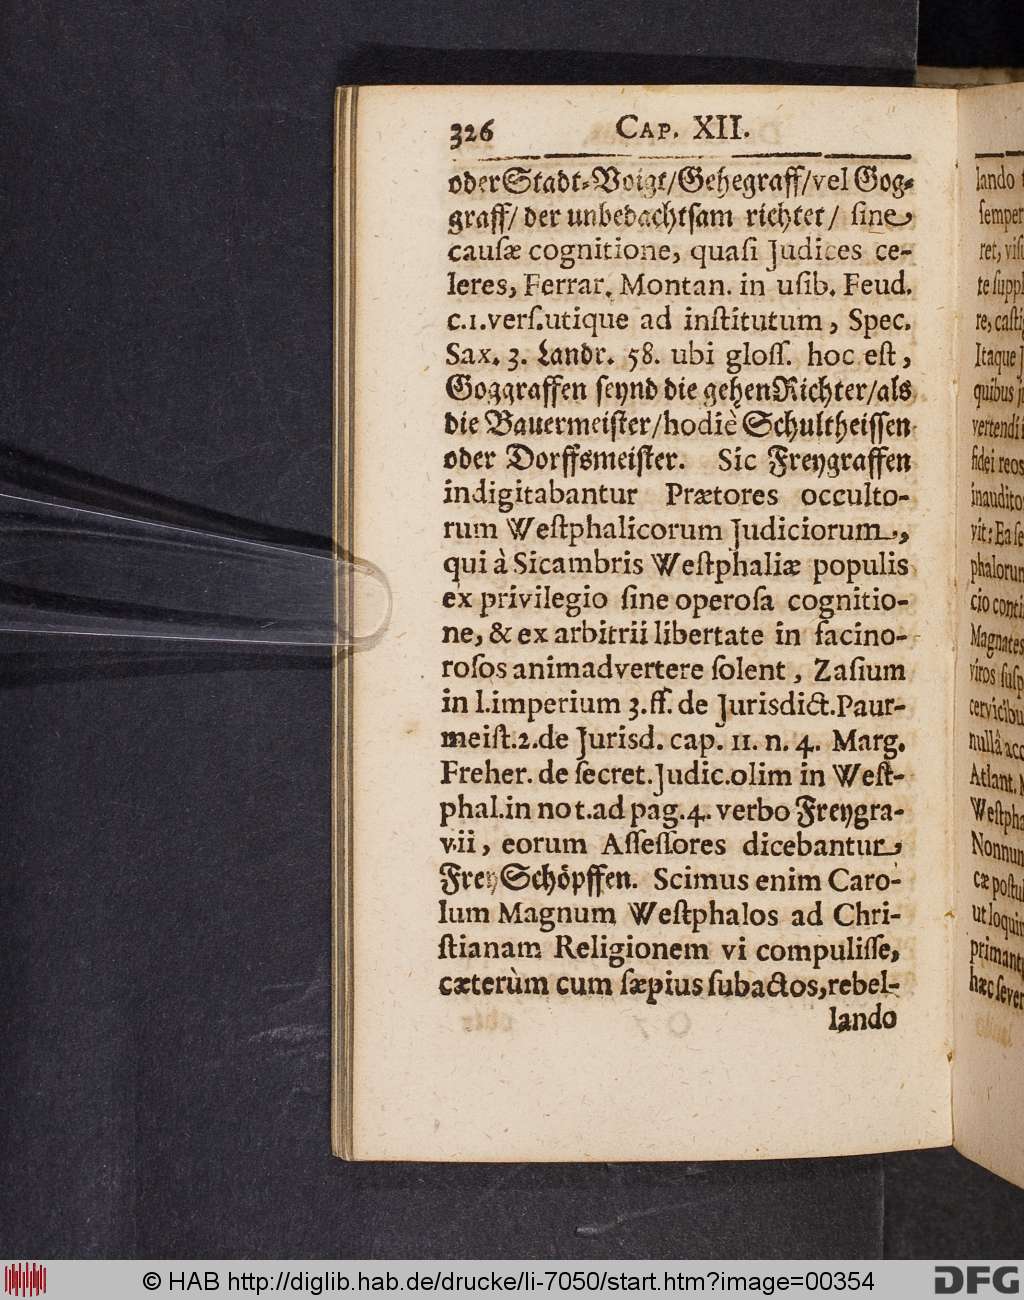 326 CAP. XII.
oder Stadt-Voigt/Gehegraff/vel Gog-
graff/ der unbedachtsam richtet/ ſine
cauſæ cognitione, quaſi Judices ce-
leres, Ferrar. Montan. in uſib. Feud.
c.1.verſ.utique ad inſtitutum, Spec.
Sax. 3. Landr. 58. ubi gloſſ. hoc eſt,
Goggraffen ſeynd die gehenRichter/als
die Bauermeiſter/hodiè Schultheiſſen
oder Dorffsmeiſter. Sic Freygraffen
indigitabantur Prætores occulto-
rum Weſtphalicorum Judiciorum,
qui à Sicambris Weſtphaliæ populis
ex privilegio ſine operoſa cognitio-
ne, & ex arbitrii libertate in facino-
roſos animadvertere ſolent, Zaſium
in l.imperium 3.ff. de Jurisdict.Paur-
meiſt.2.de Jurisd. cap. 11. n. 4. Marg.
Freher. de ſecret.Judic.olim in Weſt-
phal.in not.ad pag.4. verbo Freygra-
vii, eorum Aſſeſſores dicebantur
Frey Schöpffen. Scimus enim Caro-
lum Magnum Weſtphalos ad Chri-
ſtianam Religionem vi compuliſſe,
cæterùm cum ſæpius ſubactos,rebel-
lando
lando
ſemper
ret, viſ
te ſuppl
re, caſti
Itaque J
quibus
vertendi
fidei reos
inaudito
vit: Ea ſe
phalorum
cio conti
Magnates
viros ſuſp
cervicibu
nullâ acc
Atlant.
Weſtpha
Nonnun
cæ poſtul
ut loquir
primant
hæc ſever
© HAB http://diglib.hab.de/drucke/li-7050/start.htm?image=00354 DFG